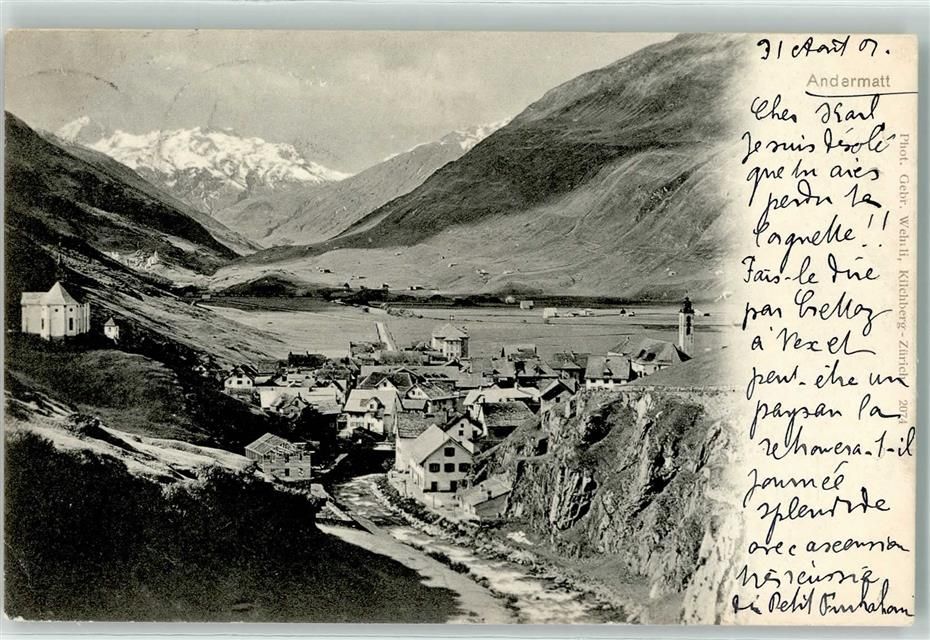 31 Août 01.
Andermatt
Cher Karl,
Je suis désolé
que tu aies
perdu ta
lorgnette!!
Fais-le dire
par Crettaz
à Vexet
peut-être un
paysan la
retrouvera-t-il
Journée
splendide
avec ascension
très réussie
du Petit Furkahorn
Phot. Gebr. Wehrli, Kilchberg-Zürich 2074